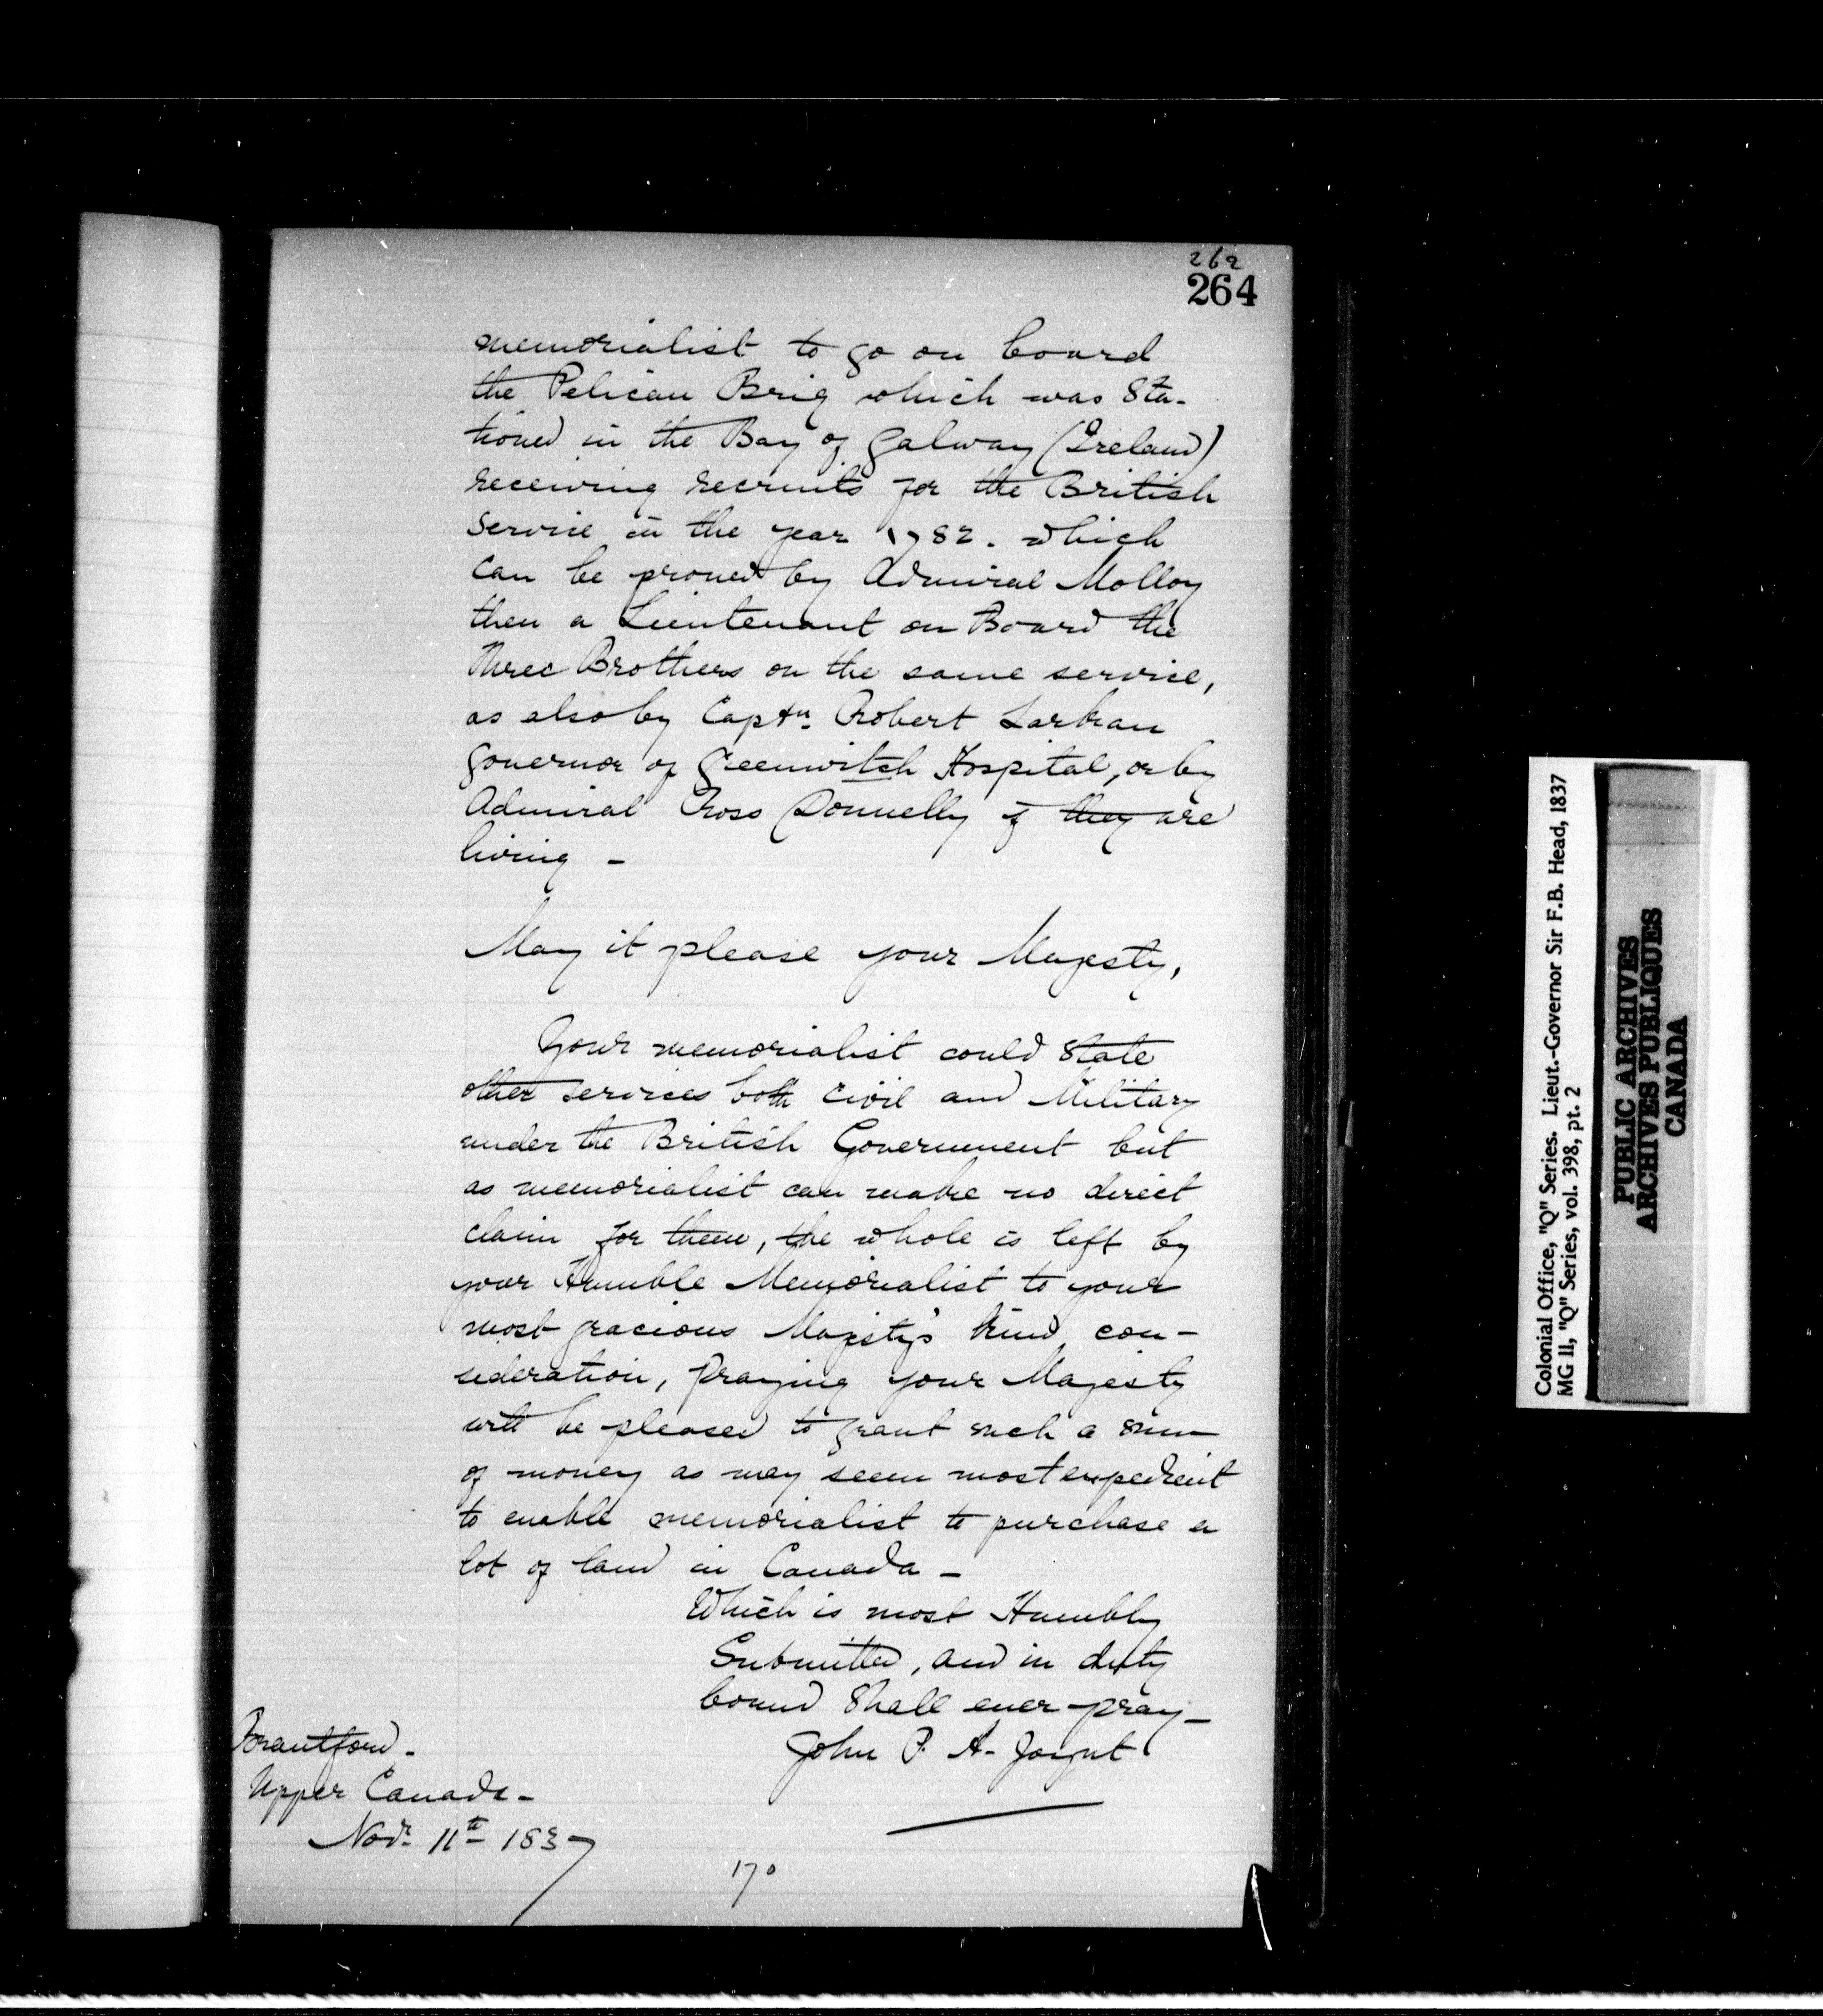 262
264
memorialist to go on board
the Pelican Brig which was Sta-
tioned in the Bay of Galway (Ireland)
receiving recruits for the British
service in the year 1782. which
can be proved by Admiral Molloy
then a Lieutenant on Board the
Three Brothers on the same service,
as also by Captn. Robert Larkan
Governor of Greenwitch Hospital, or by
Admiral Ross Donnelly if they are
living -
May it please your Majesty,
Your memorialist could State
other services both civil and Military
under the British Government but
as memorialist can make no direct
claim for them, the whole is left by
your Humble Memorialist to your
most gracious Majesty's kind con-
sideration, Praying your Majesty
will be pleased to grant such a sum
of money as may seem most expedient
to enable memorialist to purchase a
lot of land in Canada -
Which is most Humbly
Submitted, and in duty
bound Shall ever pray -
John P. A. Joynt
Brantford -
Upper Canada -
Novr. 11th 1837
170
Colonial Office, "Q" Series. Lieut.-Governor Sir F.B. Head, 1837
MG 11, "Q" Series, vol. 398, pt. 2
PUBLIC ARCHIVES
ARCHIVES PUBLIQUES
CANADA